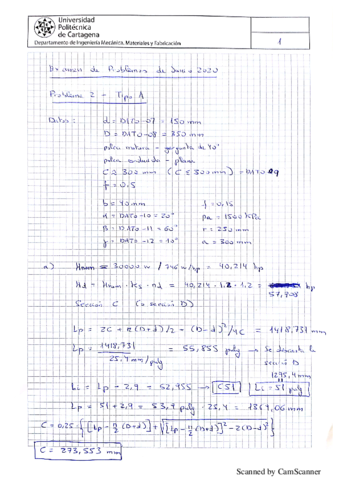 Universidad
Politécnica
de Cartagena
Departamento de Ingeniería Mecánica, Materiales y Fabricación
1
Examen de Problemas de Junio 2020
Problema 2 - Tipo A
Datos: d = DATO-07 = 150 mm
D = DATO-08 = 350 mm
polea motora - garganta de 40°
polea conducida - plana
C ≈ 300 mm (C ≤ 300 mm) = DATO 09
f = 0,5
b = 40 mm f = 0,15
α = DATO-10 = 20° pa = 1500 kPa
β = DATO-11 = 60° r = 250 mm
γ = DATO-12 = 10° a = 300 mm
a) Hnom = 30000 w / 746 w/hp = 40,214 hp
Hd = Hnom · Ks · nd = 40,214 · 1.2 · 1.2 =
57,908 hp
Sección C (o sección D)
Lp = 2C + π(D+d)/2 + (D-d)²/4C = 1418,731 mm
Lp = 1418,731 / 25.4 mm/pulg = 55,855 pulg → Se descarta la
sección D
1295,4 mm
Li = Lp - 2,9 = 52,955 → C51 Li = 51 pulg
Lp = 51 + 2,9 = 53,9 pulg · 25,4 = 1369,06 mm
C = 0,25 · {[Lp - π/2 (D+d)] + √([Lp - π/2 (D+d)]² - 2(D-d)²)}
C = 273,553 mm
Scanned by CamScanner